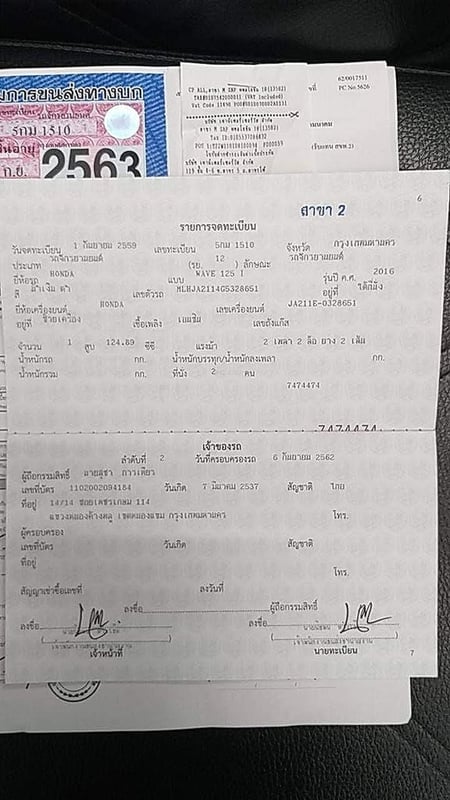 มการขนส่งทางบก
5กม 1510
2563
CP ALL,สาขา M EXP พหลโยธิน 18(13582)
62/0017511
PC No 5626
6
สาขา 2
รายการจดทะเบียน
วันจดทะเบียน 1 กันยายน 2559 เลขทะเบียน 5กม 1510 จังหวัด กรุงเทพมหานคร
ประเภท รถจักรยานยนต์ (รย. 12 ) ลักษณะ รถจักรยานยนต์
ยี่ห้อรถ HONDA แบบ WAVE 125 I รุ่นปี ค.ศ. 2016
สี ดำ เลขตัวรถ MLHJA2114G5328651 อยู่ที่ ใต้ที่นั่ง
ยี่ห้อเครื่องยนต์ HONDA เลขเครื่องยนต์ JA211E-0328651
อยู่ที่ ซ้ายเครื่อง เชื้อเพลิง เบนซิน เลขถังแก๊ส
จำนวน 1 สูบ 124.89 ซีซี แรงม้า 2 เพลา 2 ล้อ ยาง 2 เส้น
น้ำหนักรถ กก. น้ำหนักบรรทุก/น้ำหนักลงเพลา กก.
น้ำหนักรวม กก. ที่นั่ง 2 คน
7474474
7474474
เจ้าของรถ
ลำดับที่ 2 วันที่ครอบครองรถ 6 กันยายน 2562
ผู้ถือกรรมสิทธิ์ นายสุชา
เลขที่บัตร 1102002094184 วันเกิด 7 มีนาคม 2537 สัญชาติ ไทย
ที่อยู่ 14/14 ซอยเพชรเกษม 114
แขวงหนองค้างพลู เขตหนองแขม กรุงเทพมหานคร โทร.
ผู้ครอบครอง
เลขที่บัตร วันเกิด สัญชาติ
ที่อยู่
โทร.
สัญญาเช่าซื้อเลขที่ ลงวันที่
ลงชื่อ ผู้ถือกรรมสิทธิ์
ลงชื่อ ลงชื่อ
เจ้าหน้าที่ นายทะเบียน
7